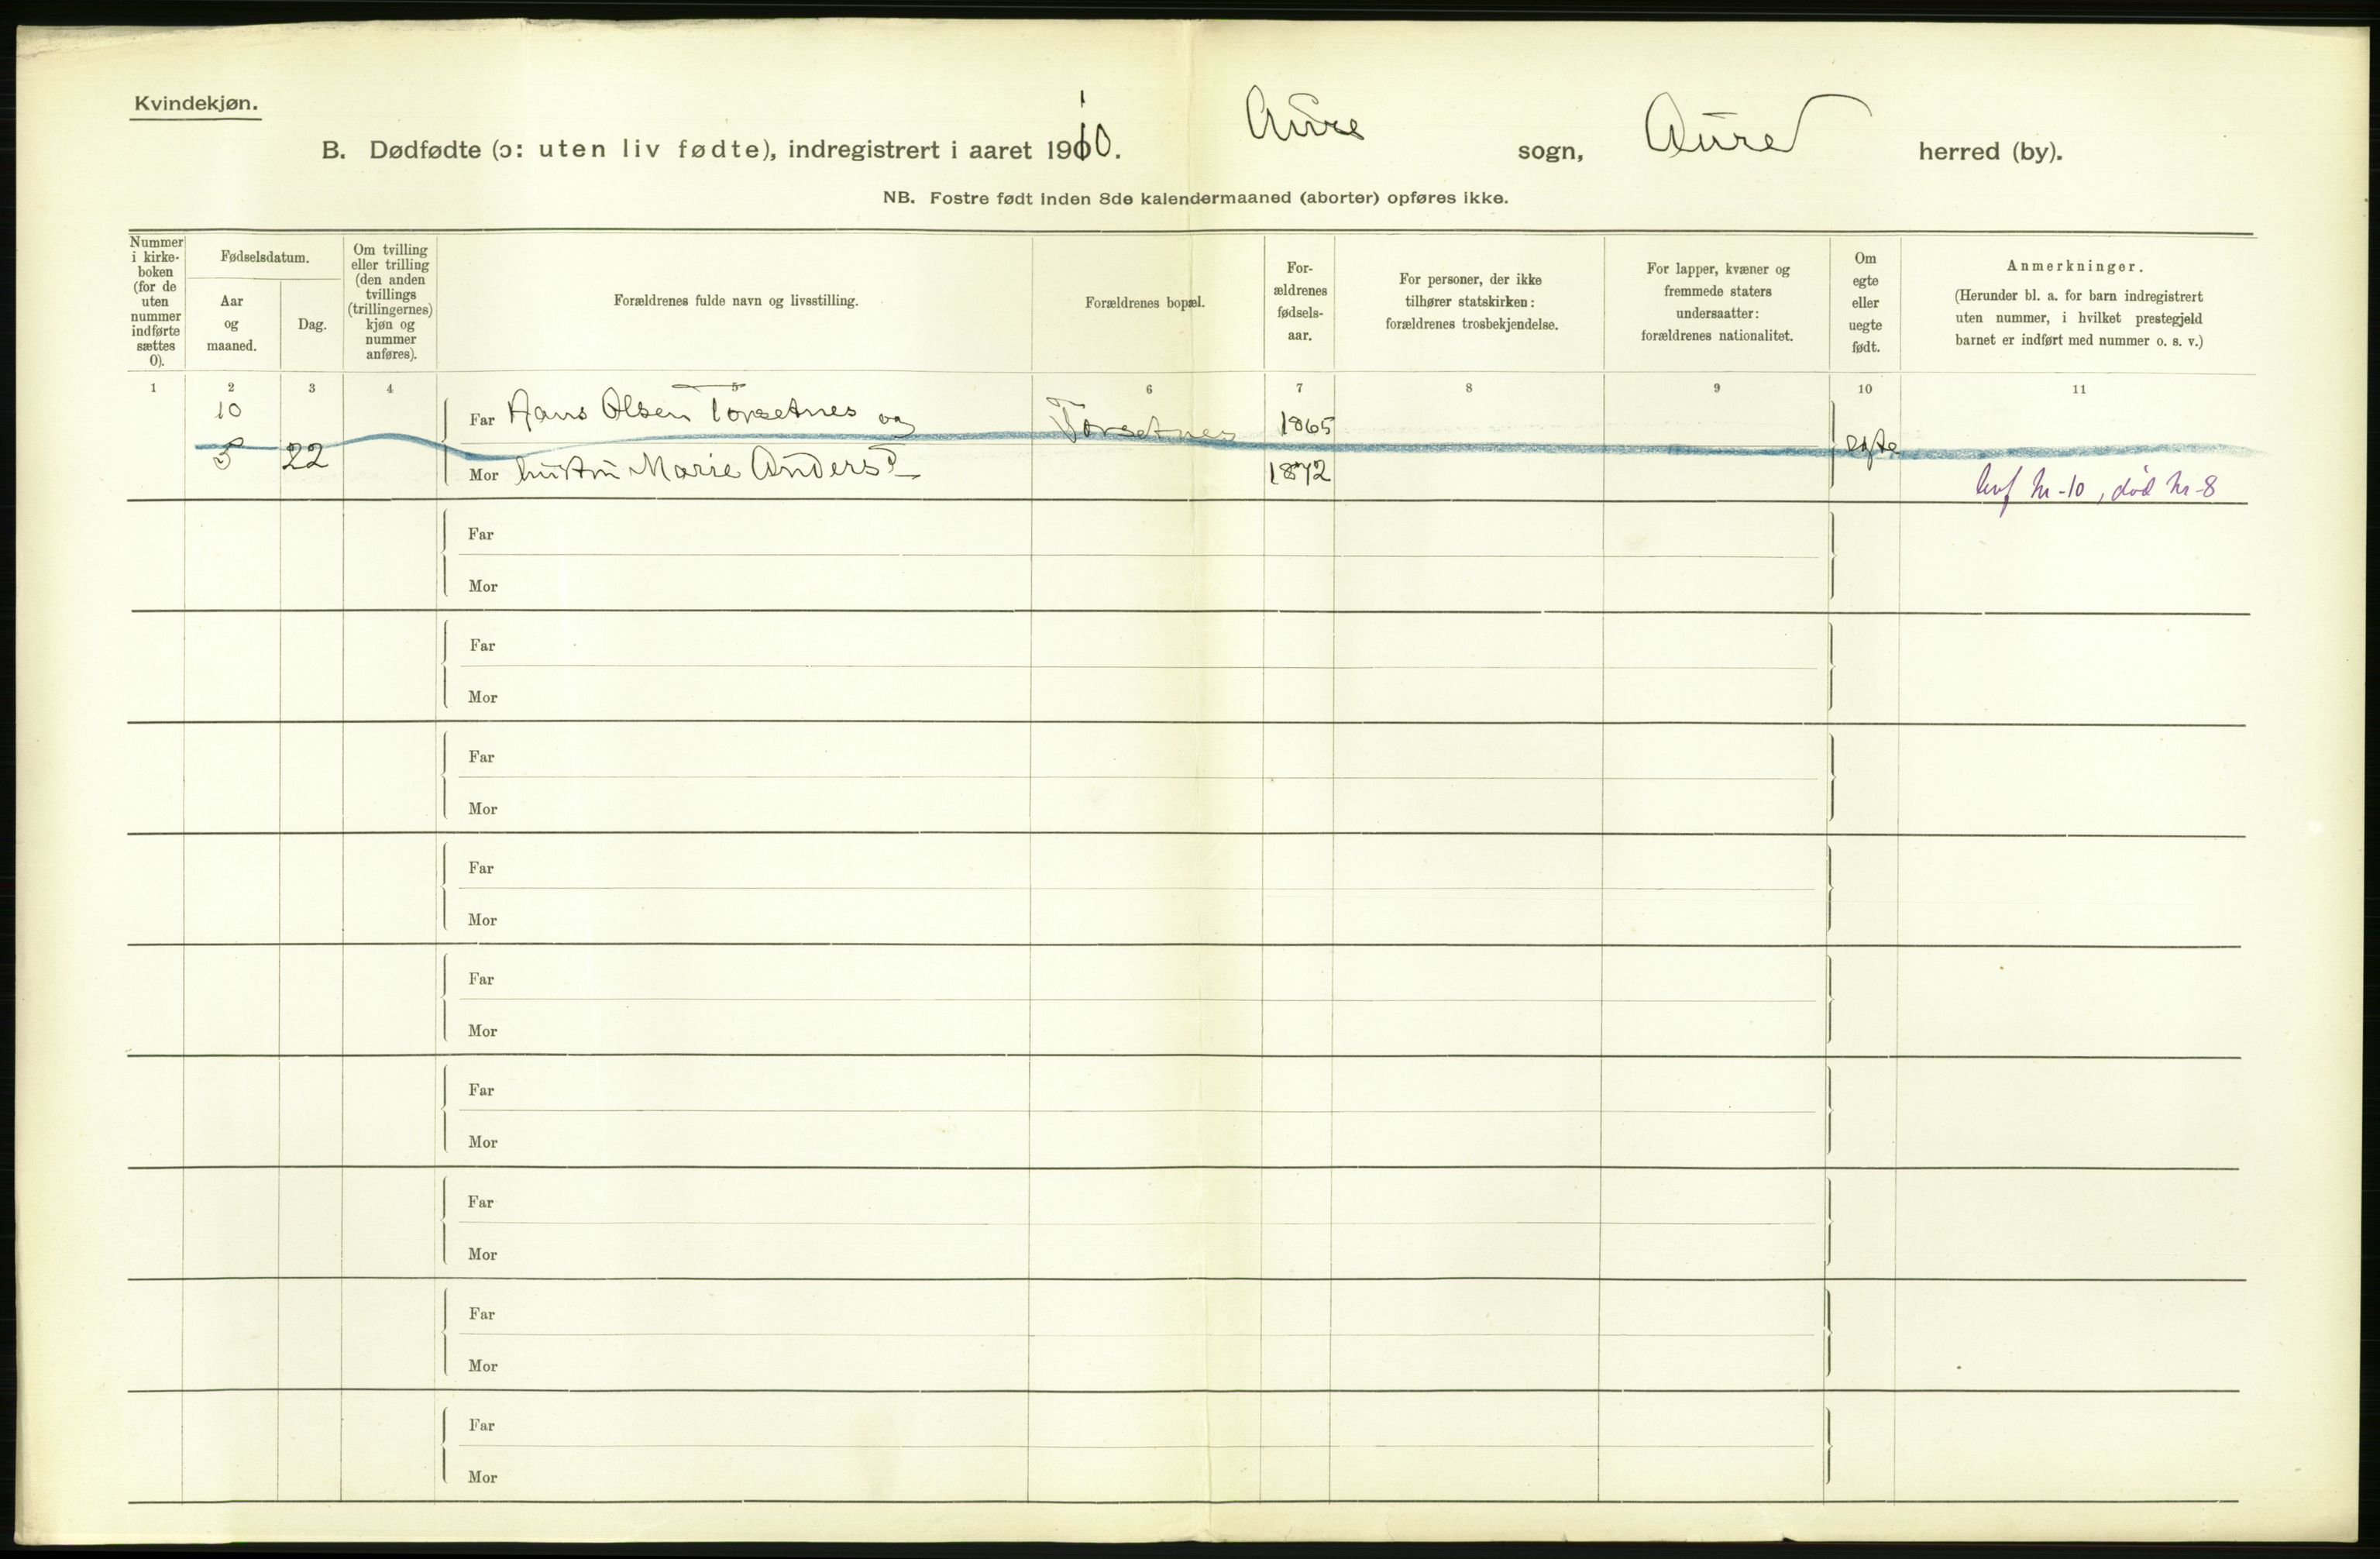 Kvindekjøn.
B. Dødfødte (ɔ: uten liv fødte), indregistrert i aaret 1910. Aure sogn, Aure herred (by).
NB. Fostre født inden 8de kalendermaaned (aborter) opføres ikke.
Nummer
i kirke-
boken
(for de
uten
nummer
indførte
sættes
0).
Fødselsdatum.
Aar
og
maaned.
Dag.
Om tvilling
eller trilling
(den anden
tvillings
(trillingernes)
kjøn og
nummer
anføres).
Forældrenes fulde navn og livsstilling.
Forældrenes bopæl.
For-
ældrenes
fødsels-
aar.
For personer, der ikke
tilhører statskirken:
forældrenes trosbekjendelse.
For lapper, kvæner og
fremmede staters
undersaatter:
forældrenes nationalitet.
Om
egte
eller
uegte
født.
Anmerkninger.
(Herunder bl. a. for barn indregistrert
uten nummer, i hvilket prestegjeld
barnet er indført med nummer o. s. v.)
1 2 3 4 5 6 7 8 9 10 11
10
5 22
Far Hans Olsen Torsetnes og Torsetnes 1865
egte
Mor hustru Marie Andersd 1872
levf nr-10, død nr-8
Far
Mor
Far
Mor
Far
Mor
Far
Mor
Far
Mor
Far
Mor
Far
Mor
Far
Mor
Far
Mor